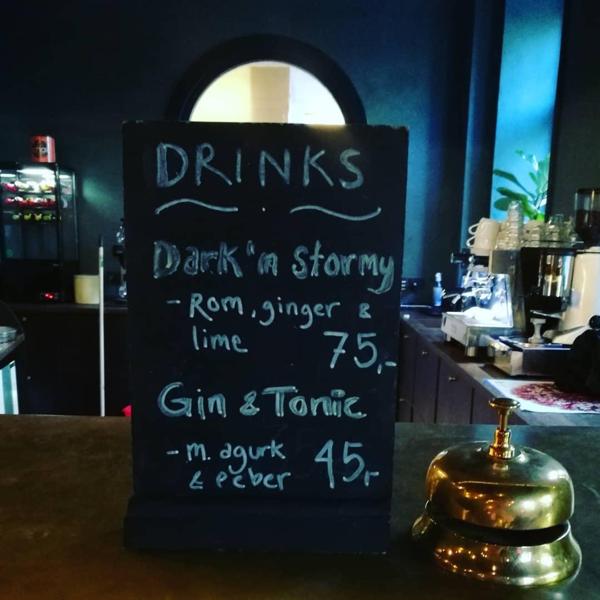 DRINKS
Dark'n Stormy
- Rom, ginger &
lime 75,-
Gin & Tonic
- m. agurk
& peber 45,-